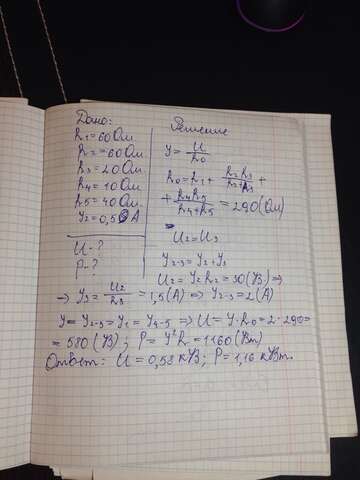 Дано:
R₁ = 60 Ом
R₂ = 60 Ом
R₃ = 20 Ом
R₄ = 10 Ом
R₅ = 40 Ом
У₂ = 0,5 А
U - ?
P - ?
Решение
У = U/R₀
R₀ = R₁ + R₂R₃/(R₂+R₃) +
+ R₄R₅/(R₄+R₅) = 290 (Ом)
U₂ = U₃
У₂₋₃ = У₂ + У₃
U₂ = У₂R₂ = 30 (В) ⇒
→ У₃ = U₂/R₃ = 1,5 (А) ⇒ У₂₋₃ = 2 (А)
У = У₂₋₃ = У₁ = У₄₋₅ ⇒ U = У·R₀ = 2·290 =
= 580 (В) ; P = У²R = 1160 (Вт)
Ответ: U = 0,58 кВ ; P = 1,16 кВт.